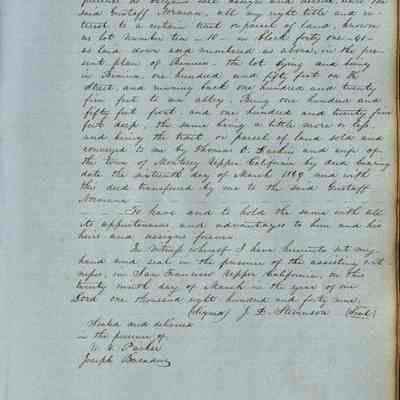 presents do bargain sell assign and
said Gustaff Normann, all my right title and in-
terest to a certain tract or parcel of land, known
as lot number ten - 10 - in block forty one - 41 -
as laid down and numbered as above, in the pre-
sent plan of Benicia - the lot lying and being
in Benicia, one hundred and fifty feet on the
Street, and running back one hundred and twenty
five feet to an alley. Being one hundred and
fifty feet front, and one hundred and twenty five
feet deep, the same being a little more or less
and being the tract or parcel of land sold and
conveyed to me by Thomas O. Larkin and wife of
the town of Monterey Upper California by deed bearing
date the sixteenth day of March 1849 and with
this deed transferred by me to the said Gustaff
Normann.
To have and to hold the same with all
its appurtenances, and advantages to him and his
heirs and assigns forever.
In witness whereof I have hereunto set my
hand and seal in the presence of the assisting wit
nesses, in San Francisco Upper California, on this
twenty ninth day of March in the year of our
Lord one thousand eight hundred and forty nine,
(Signed) J. D. Stevenson (Seal)
Sealed and delivered
in the presence of
Parker
Joseph